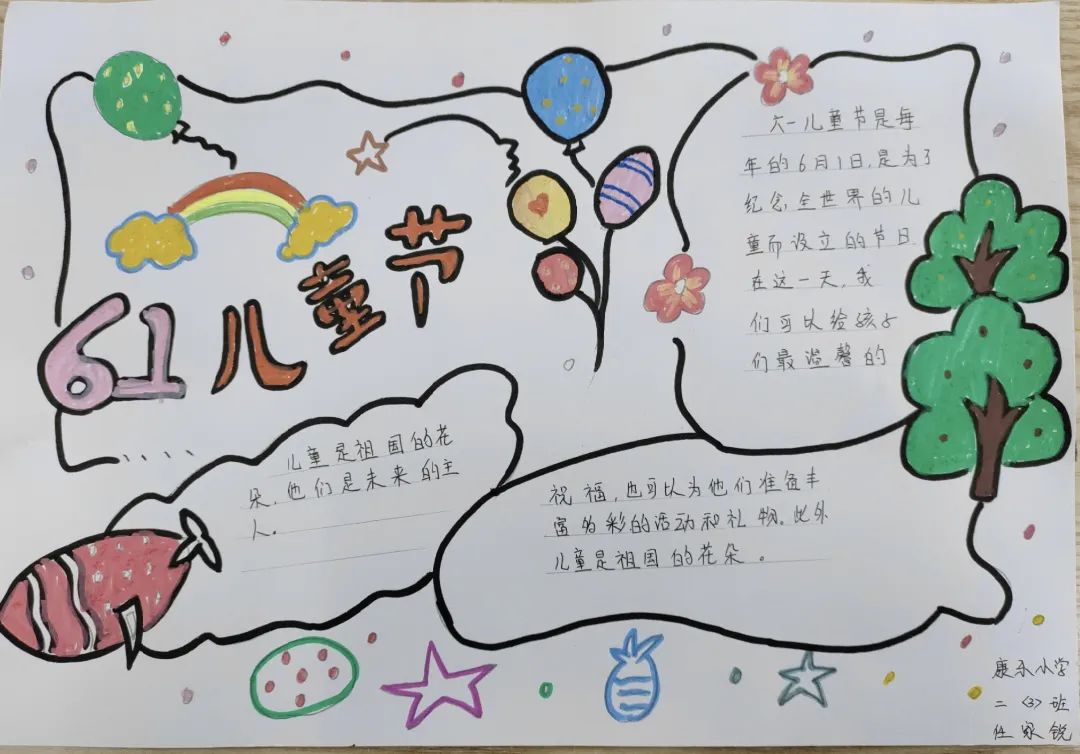 61儿童节
六一儿童节是每
年的6月1日,是为了
纪念全世界的儿
童而设立的节日
在这一天,我
们可以给孩子
们最温馨的
儿童是祖国的花
朵,他们是未来的主
人。
祝福,也可以为他们准备丰
富多彩的活动和礼物。此外
儿童是祖国的花朵。
康乐小学
二〈3〉班
任家锐